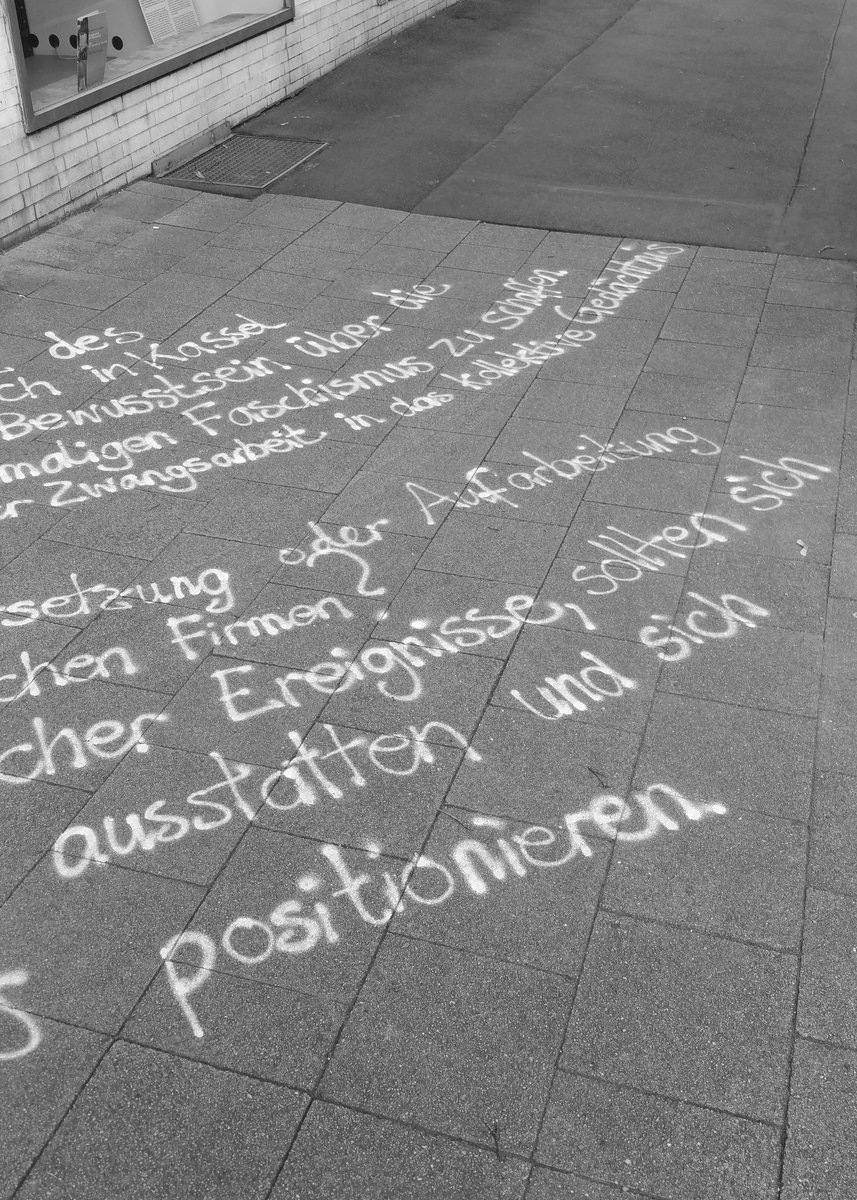 des
ch in Kassel
Bewusstsein über die
maligen Faschismus zu schaffen.
r Zwangsarbeit in das kollektive Gedächtnis
setzung oder Aufarbeitung
chen Firmen?
cher Ereignisse, sollten sich
ausstatten und sich
positionieren.